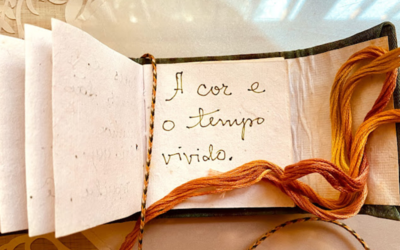 A cor e
o tempo
vivido.